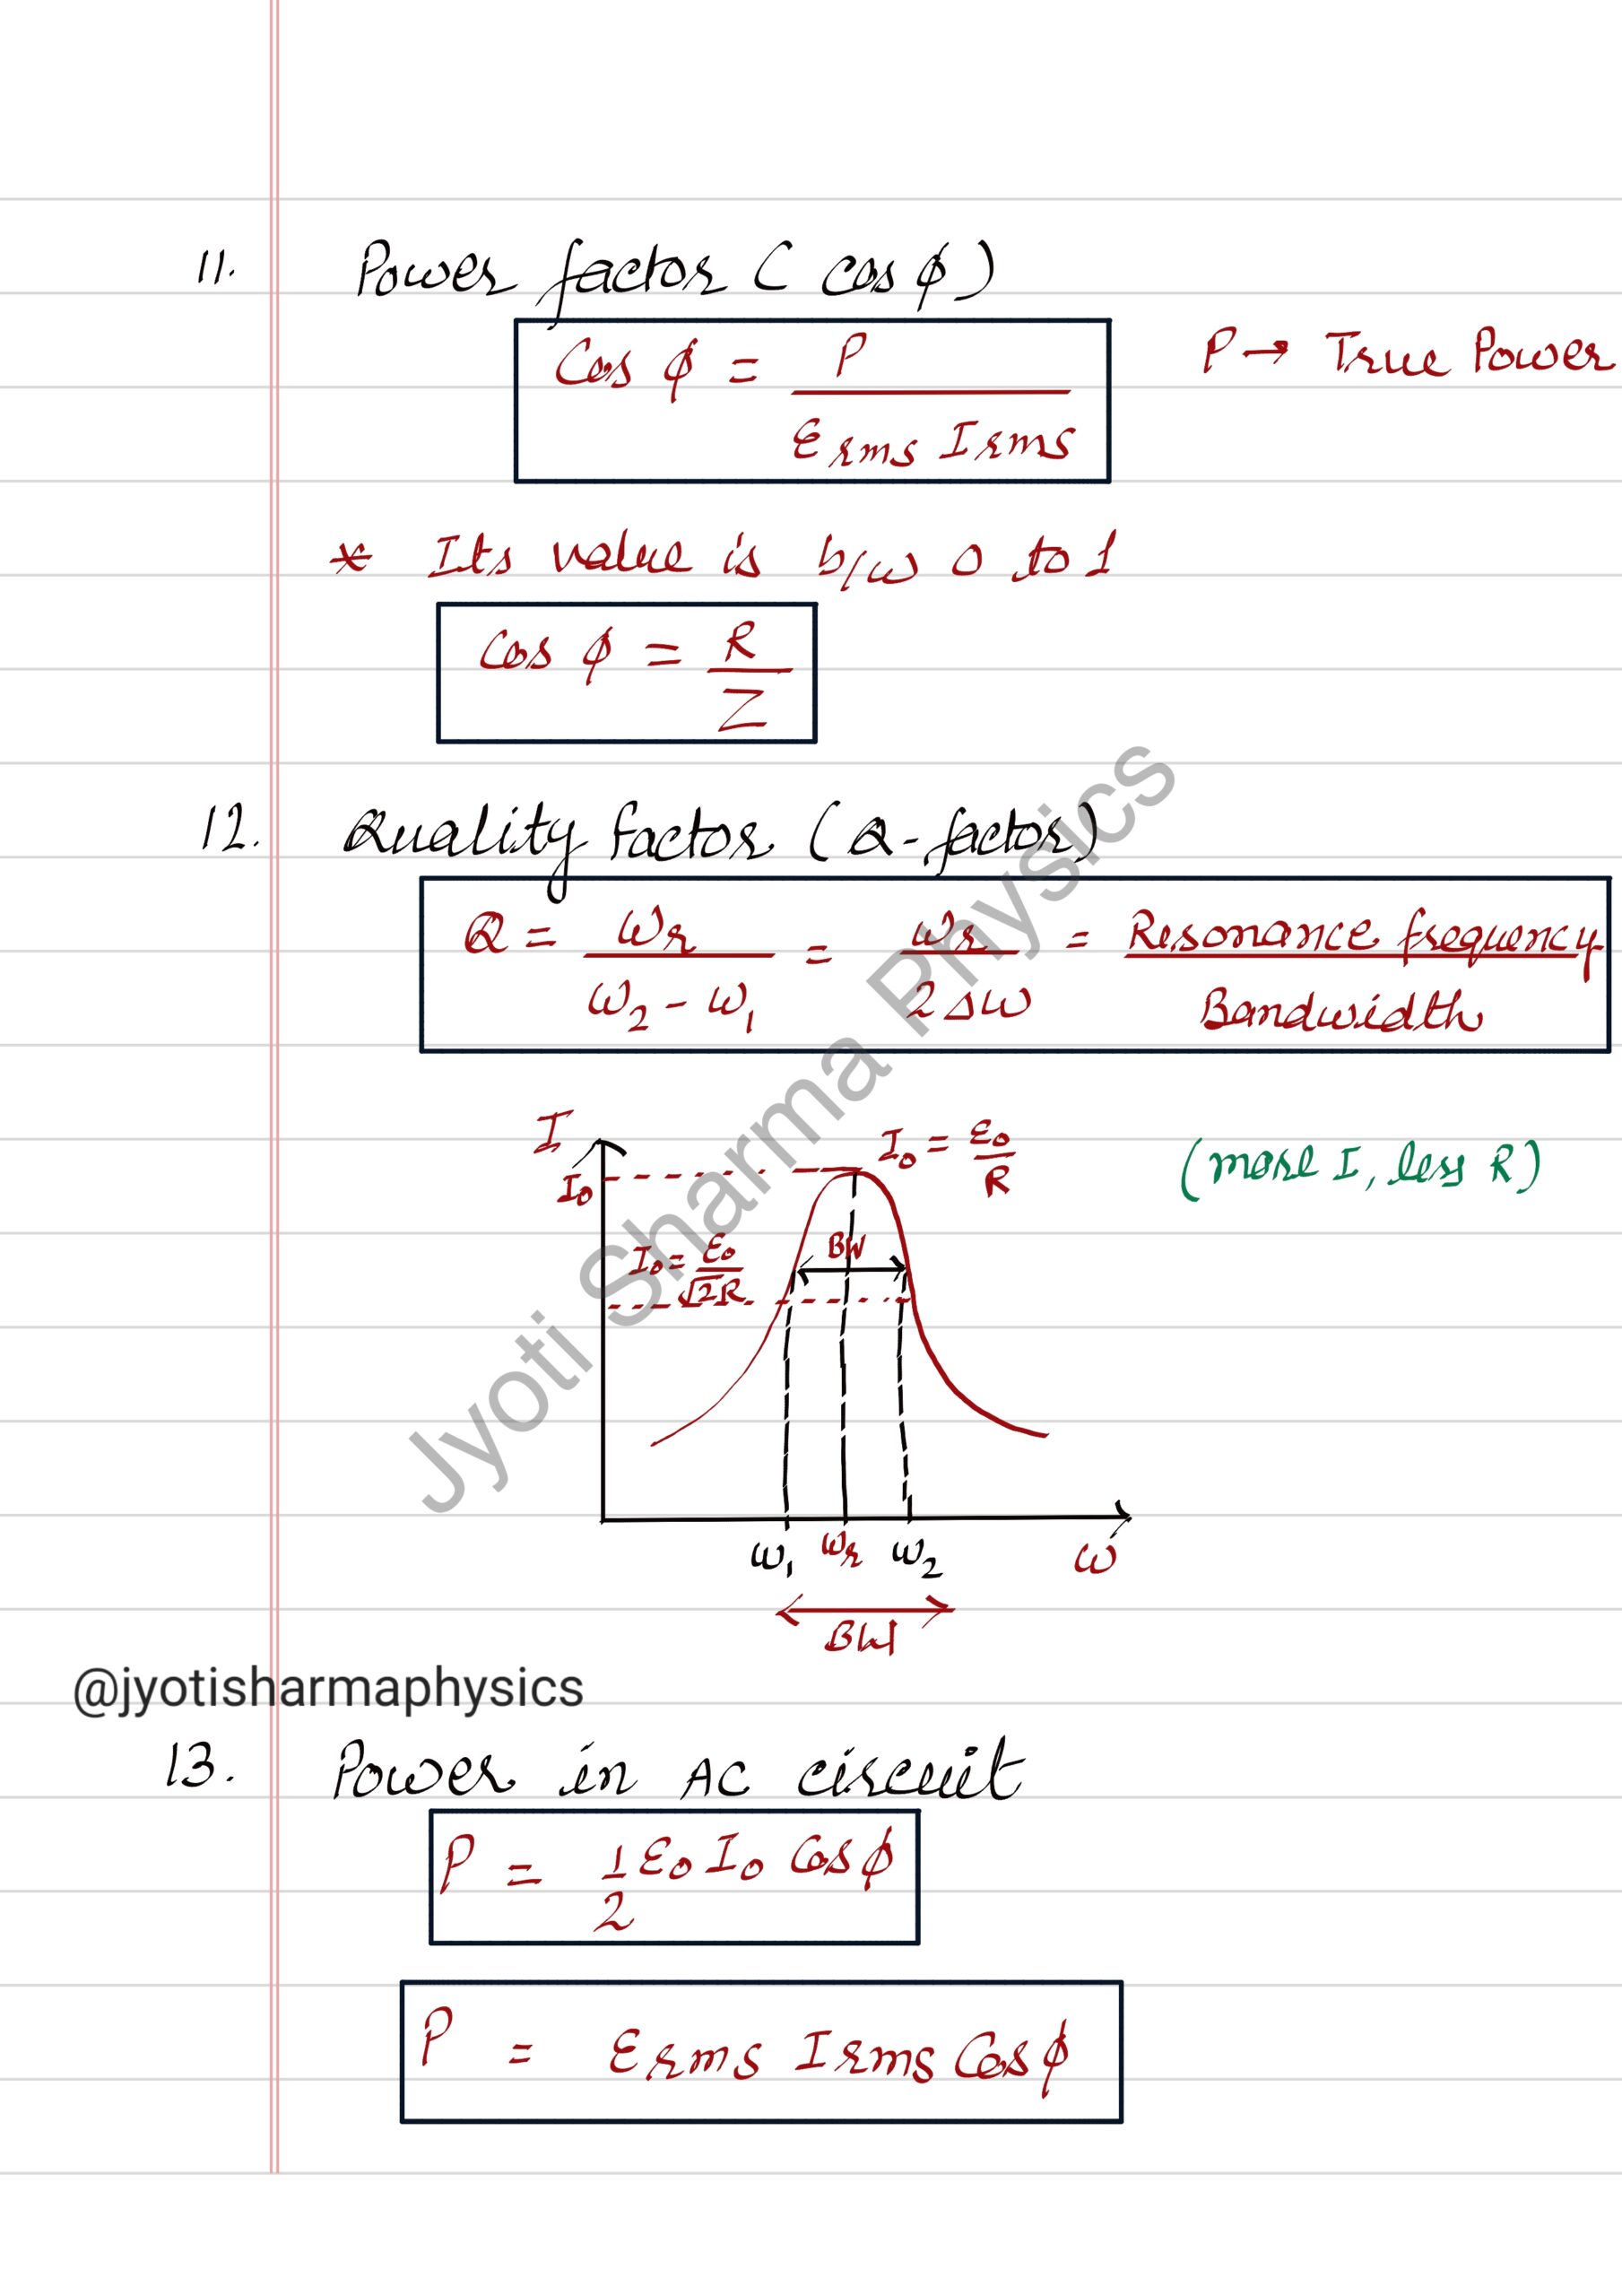 11. Power factor (cos ϕ)
Cos ϕ = P / Erms Irms
P → True Power
* Its value is b/w 0 to 1
Cos ϕ = R / Z
12. Quality factor (Q-factor)
Q = ωr / ω2 - ω1 = ωr / 2Δω = Resonance frequency / Bandwidth
I
I0
I0 = ε0 / R
(more I, less R)
BW
I0 = ε0 / √2R
ω1 ωr ω2 ω
BW
Jyoti Sharma Physics
@jyotisharmaphysics
13. Power in AC circuit
P = 1/2 ε0 I0 Cos ϕ
P = Erms Irms Cos ϕ